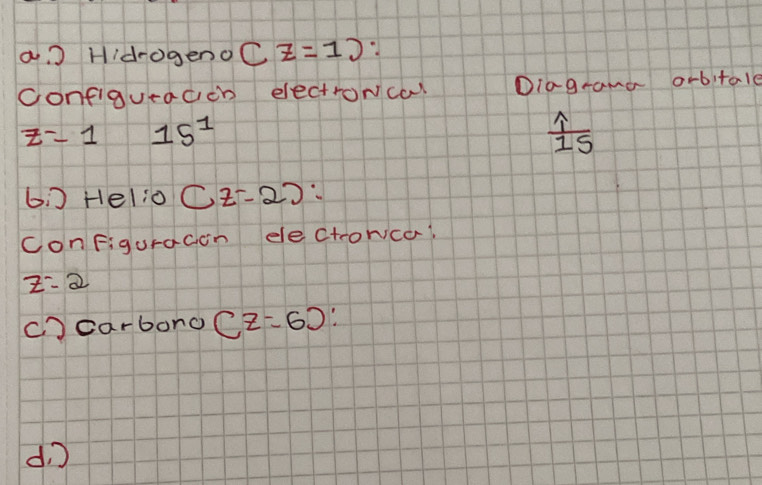 a.) Hidrogeno (Z=1):
Configuración electronica: Diagrama orbitale
Z=1 1S¹ ↑
1S
b.) Helio (Z=2):
Configuración electronica:
Z=2
c.) Carbono (Z=6):
d.)